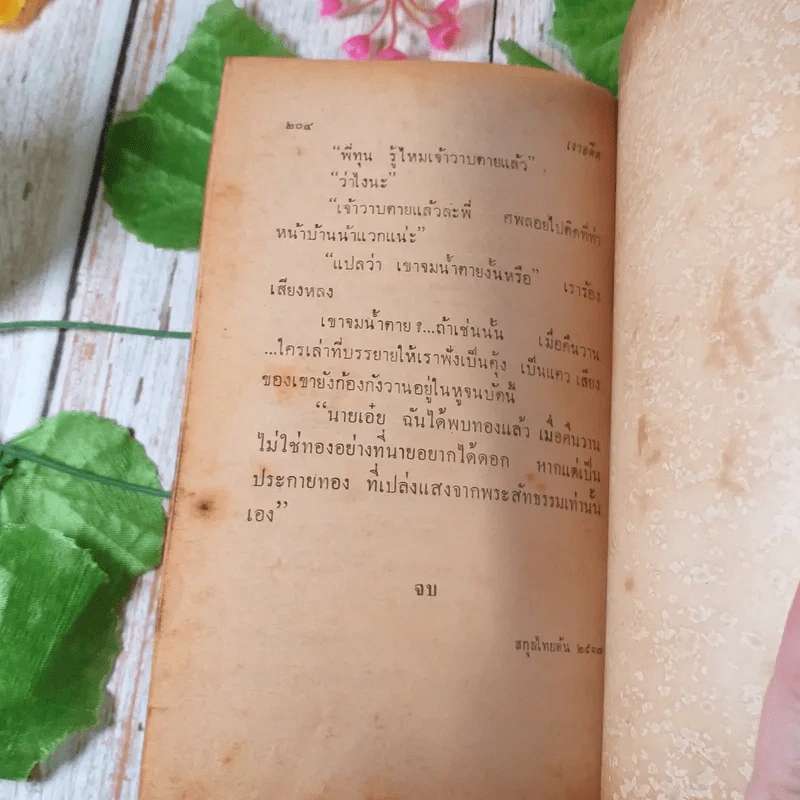 ๒๐๔
เงาอดีต
“พี่ทุน รู้ไหมเจ้าวาบตายแล้ว”
“ว่าไงนะ”
“เจ้าวาบตายแล้วล่ะพี่ ศพลอยไปติดที่ท่า
หน้าบ้านน้าแวกแน่ะ”
“แปลว่า เขาจมน้ำตายงั้นหรือ” เราร้อง
เสียงหลง
เขาจมน้ำตาย ?...ถ้าเช่นนั้น เมื่อคืนวาน
...ใครเล่าที่บรรยายให้เราฟังเป็นคุ้ง เป็นแคว เสียง
ของเขายังก้องกังวานอยู่ในหูจนบัดนี้
“นายเอ๋ย ฉันได้พบทองแล้ว เมื่อคืนวาน
ไม่ใช่ทองอย่างที่นายอยากได้ดอก หากแต่เป็น
ประกายทอง ที่เปล่งแสงจากพระสัทธรรมเท่านั้น
เอง”
จบ
สกุลไทยต้น